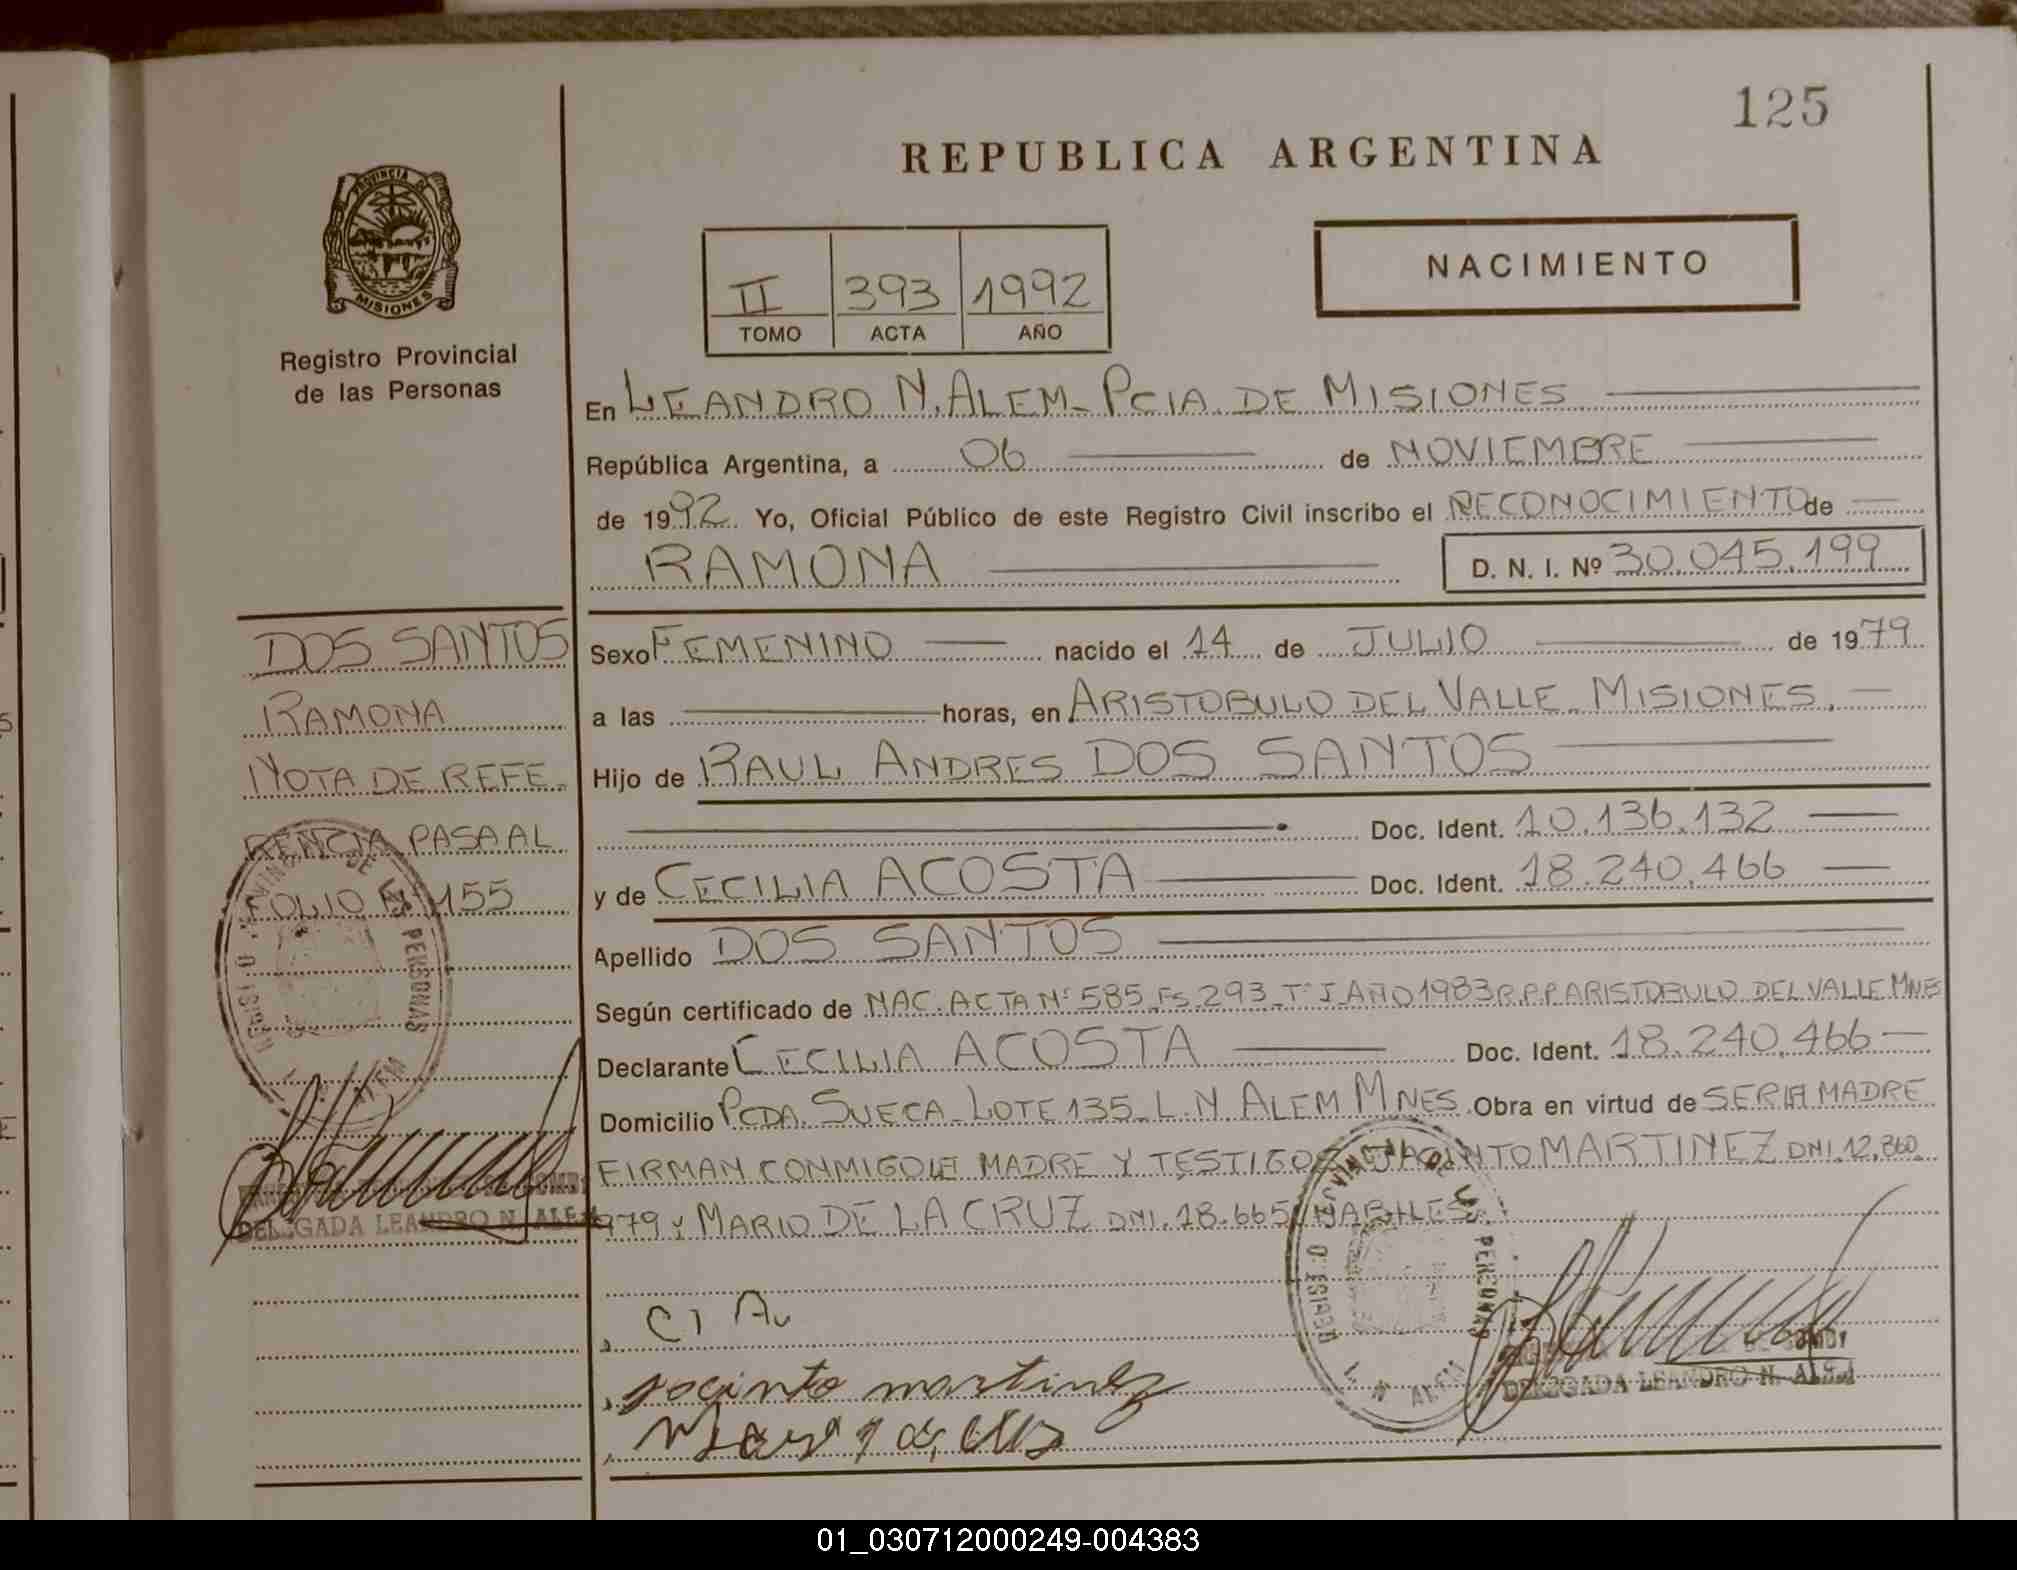 125
REPUBLICA ARGENTINA
PROVINCIA DE
MISIONES
Registro Provincial
de las Personas
NACIMIENTO
II 393 1992
TOMO ACTA AÑO
En LEANDRO N. ALEM - PCIA. DE MISIONES
República Argentina, a 06 de NOVIEMBRE
de 1992. Yo, Oficial Público de este Registro Civil inscribo el RECONOCIMIENTO de
RAMONA D. N. I. Nº 30.045.199
DOS SANTOS
RAMONA
NOTA DE REFE-
RENCIA PASA AL
FOLIO Nº 155
Sexo FEMENINO nacido el 14 de JULIO de 1979
a las horas, en ARISTOBULO DEL VALLE - MISIONES.
Hijo de RAUL ANDRES DOS SANTOS
Doc. Ident. 10.136.132
y de CECILIA ACOSTA Doc. Ident. 18.240.466
Apellido DOS SANTOS
Según certificado de NAC. ACTA Nº 585 Fs 293 - Tº I AÑO 1983 R.P.P ARISTOBULO DEL VALLE MNES
Declarante CECILIA ACOSTA Doc. Ident. 18.240.466
Domicilio PCDA. SUECA - LOTE 135 - L. N ALEM MNES Obra en virtud de SER LA MADRE
FIRMAN CONMIGO LA MADRE Y TESTIGOS JACINTO MARTINEZ DNI. 12.860.
979 y MARIO DE LA CRUZ DNI. 18.665 HABILES
DE LAS PERSONAS
L. N. ALEM
DELEGADA LEANDRO N. ALEM
C I A
jacinto martinez
DE LAS PERSONAS
L. N. ALEM
DELEGADA LEANDRO N. ALEM
01_030712000249-004383